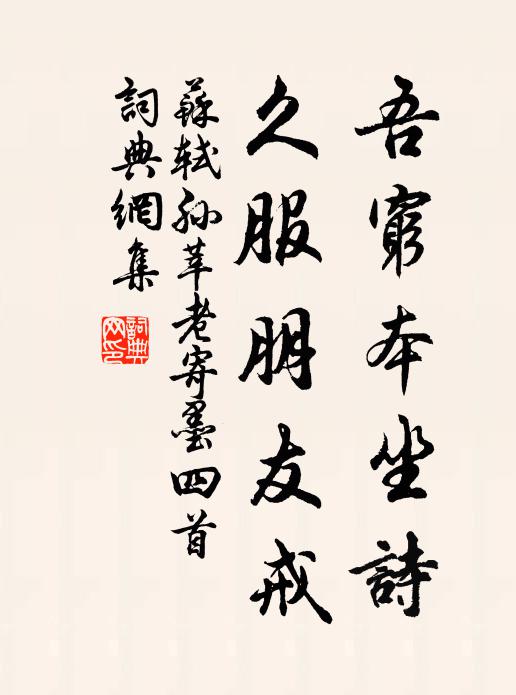 吾窮本坐詩
久服朋友戒
蘇軾孫莘老寄墨四首
詞典網集
詞典網印